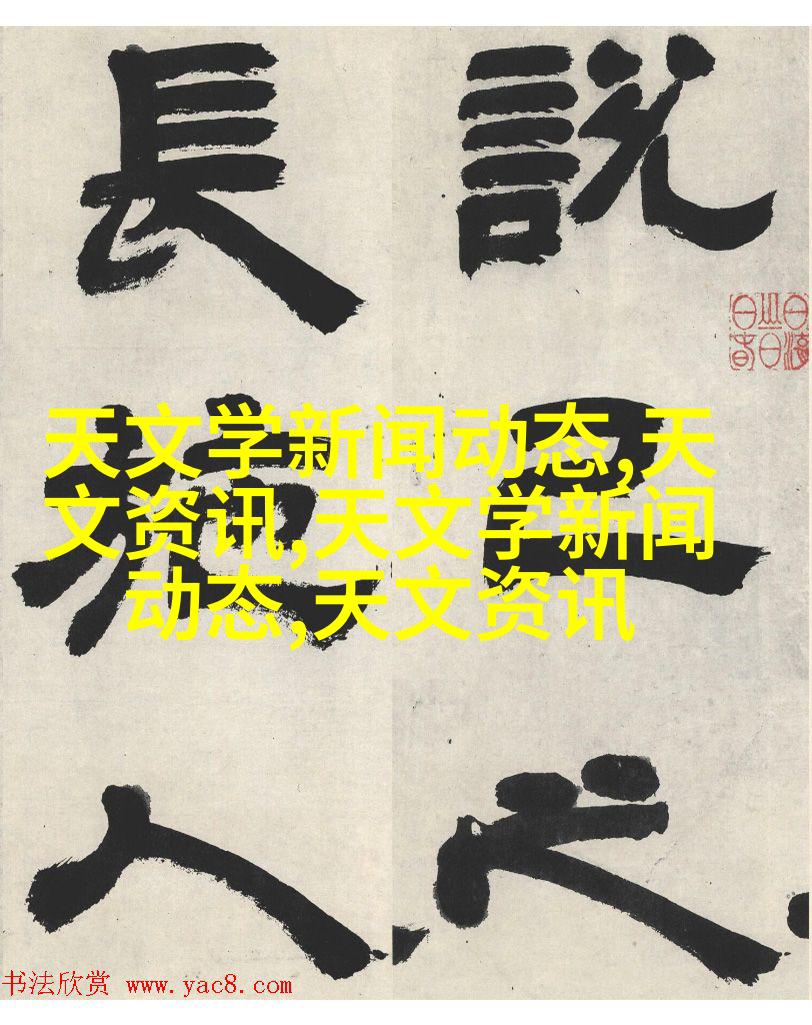 說己之
長施人
天文学新闻动态,天
文资讯,天文学新闻
动态,天文资讯
书法欣赏 www.yac8.com